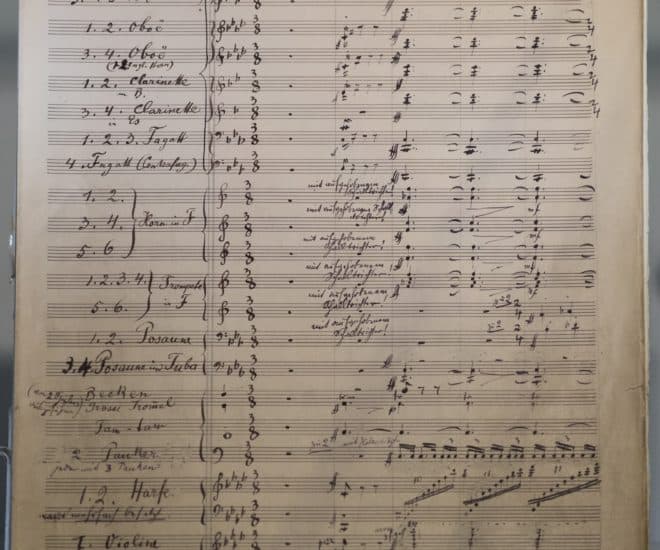 1. 2. Oboë
3. 4. Oboë
1. 2. Clarinette
in B.
3. 4. Clarinette
in Es
1. 2. 3. Fagott
4. Fagott (Contrafag.)
mit aufgehobenem
Schalltrichter!
1. 2.
mit aufgehobenem Schall
trichter!
3. 4. Horn in F
mit aufgehobenem
Schalltrichter!
5. 6
mit aufgehobenem
Schalltrichter!
1. 2. 3. 4. Trompete
in F
mit aufgehobenem
Schalltrichter
5. 6.
mit aufgehobenem
Schalltrichter!
1. 2. Posaune
3. 4. Posaune und Tuba
Becken
Grosse Trommel
Tam-tam
2 Pauker
jeder mit 3 Pauken
1. 2. Harfe
I. Violine